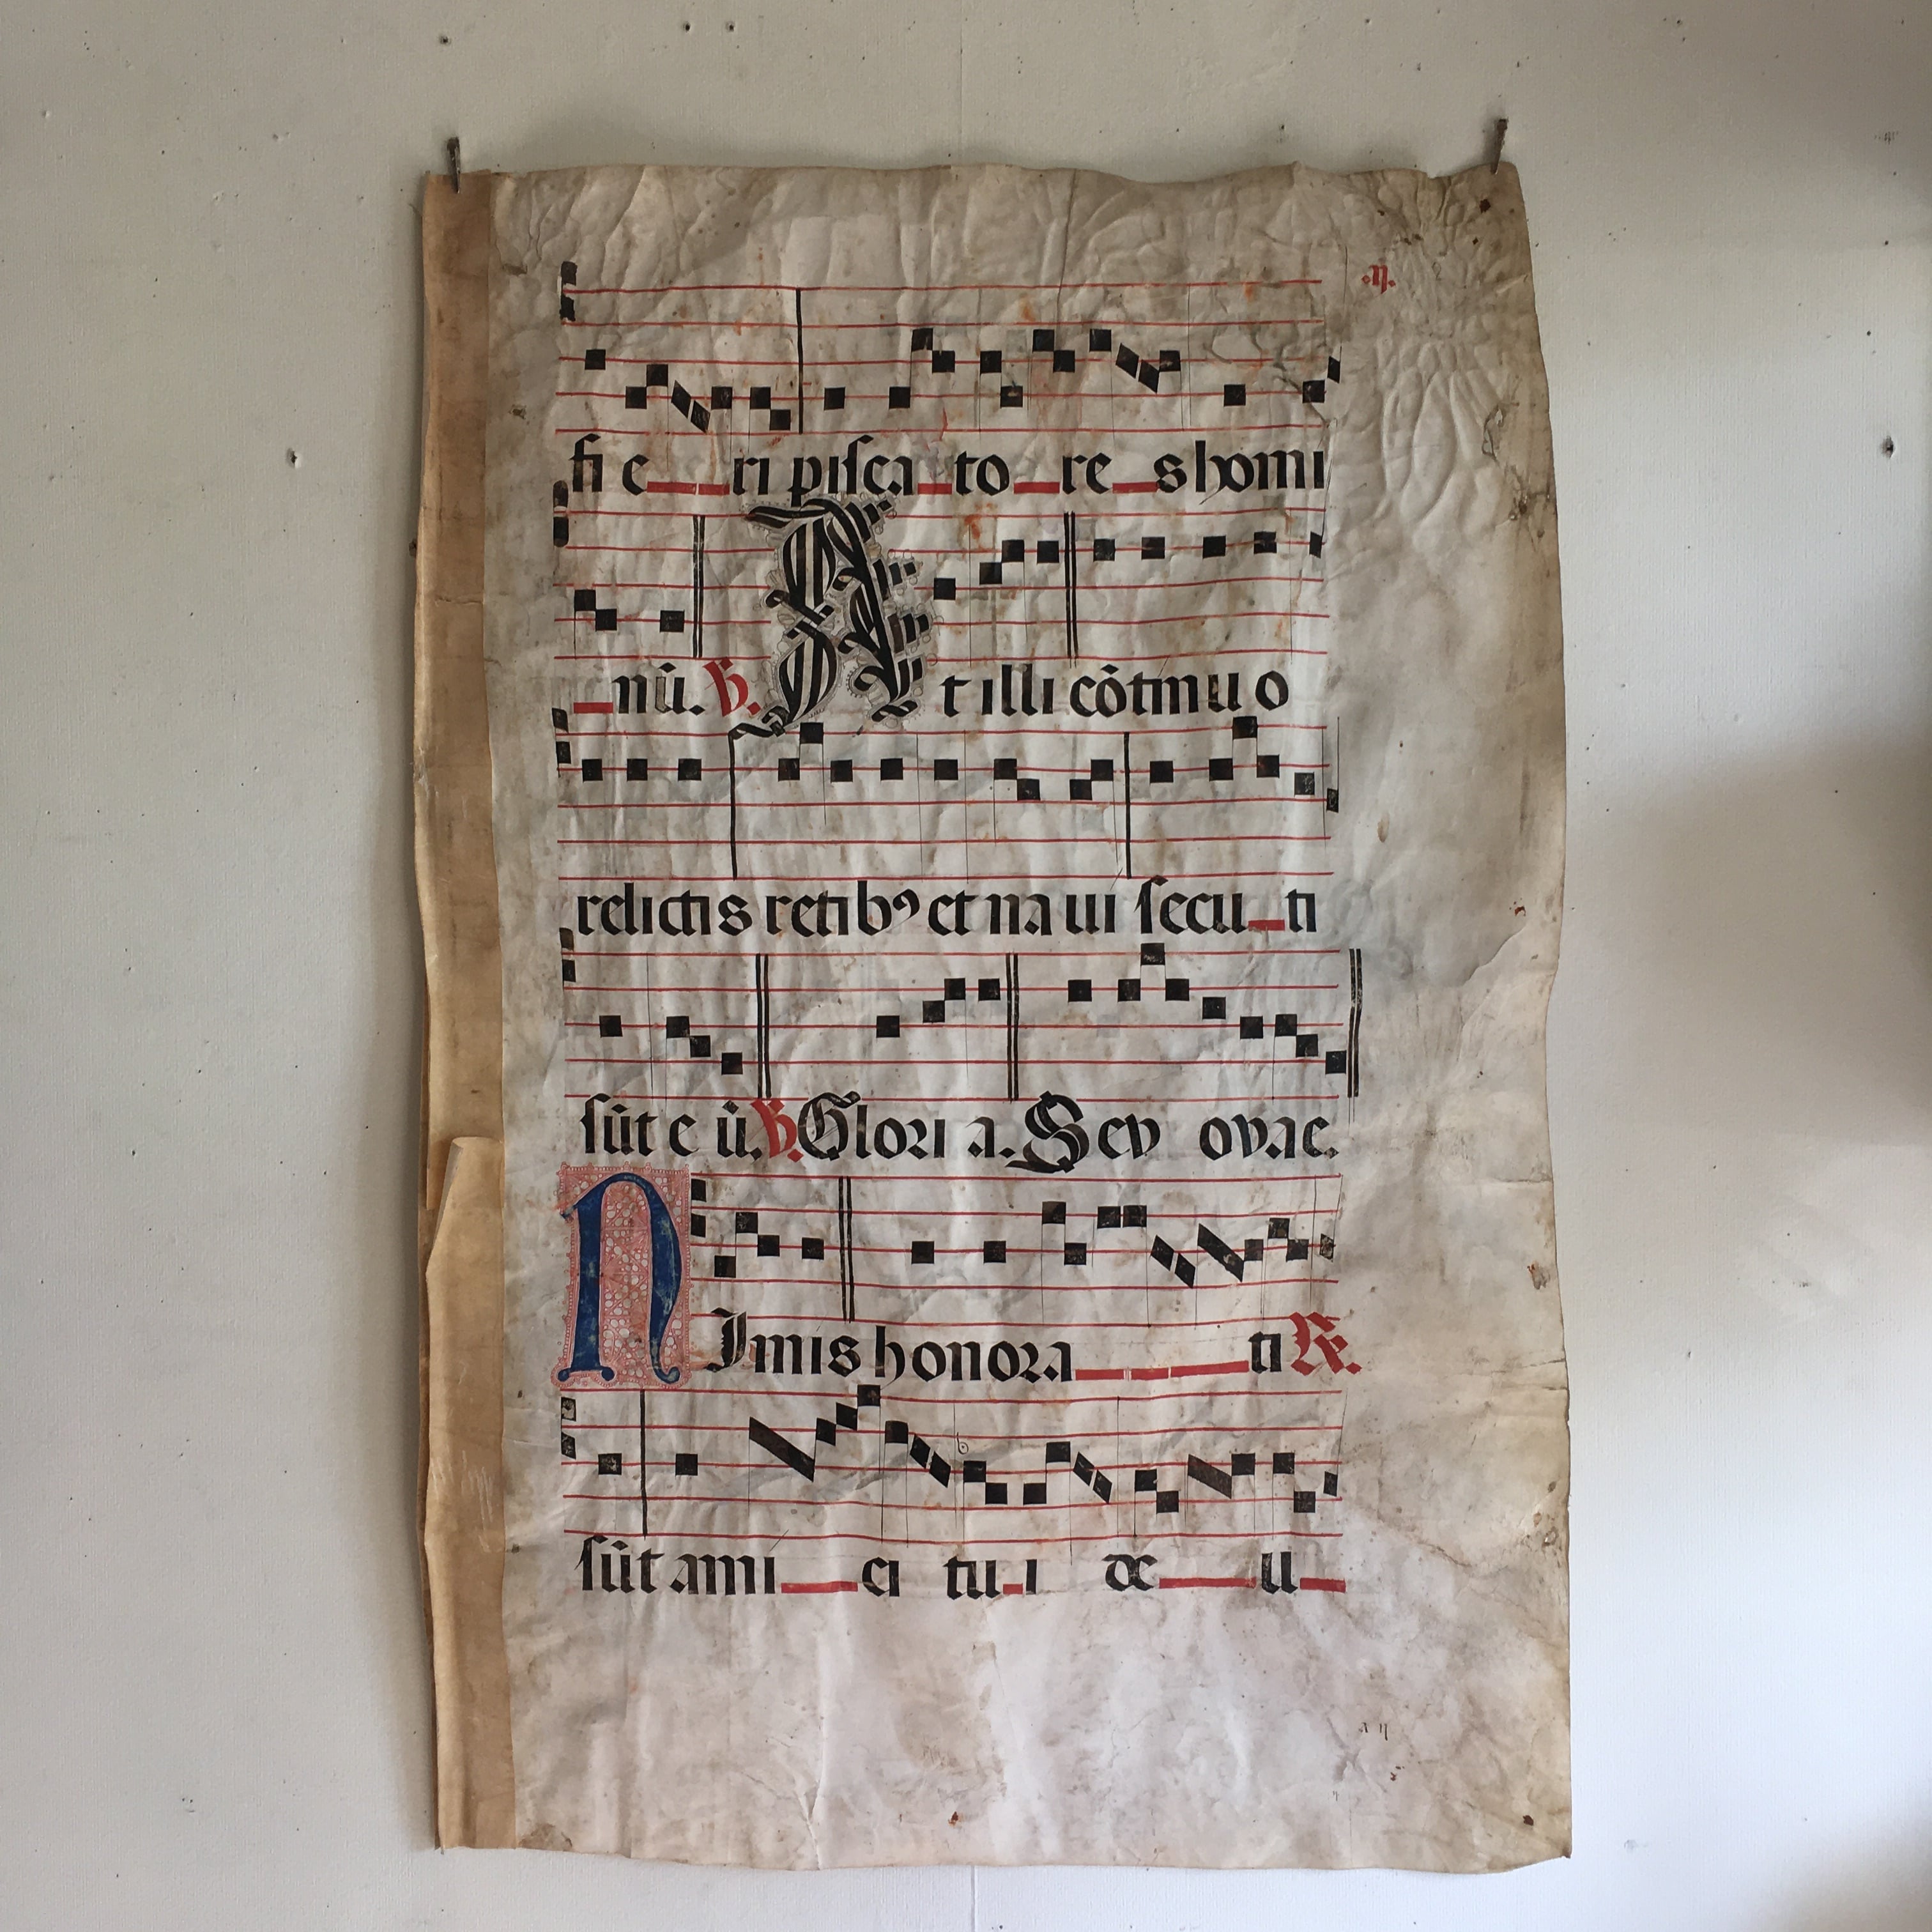 .η.
fi e ri piſca to re s homi
nū. ℣. At illi cōtinu o
relictis retibꝰ et na ui ſecu ti
ſūt e ū. ℣. Glori a. Sev ovae.
NImis honora ti ℟.
ſūt ami ci tu i de u